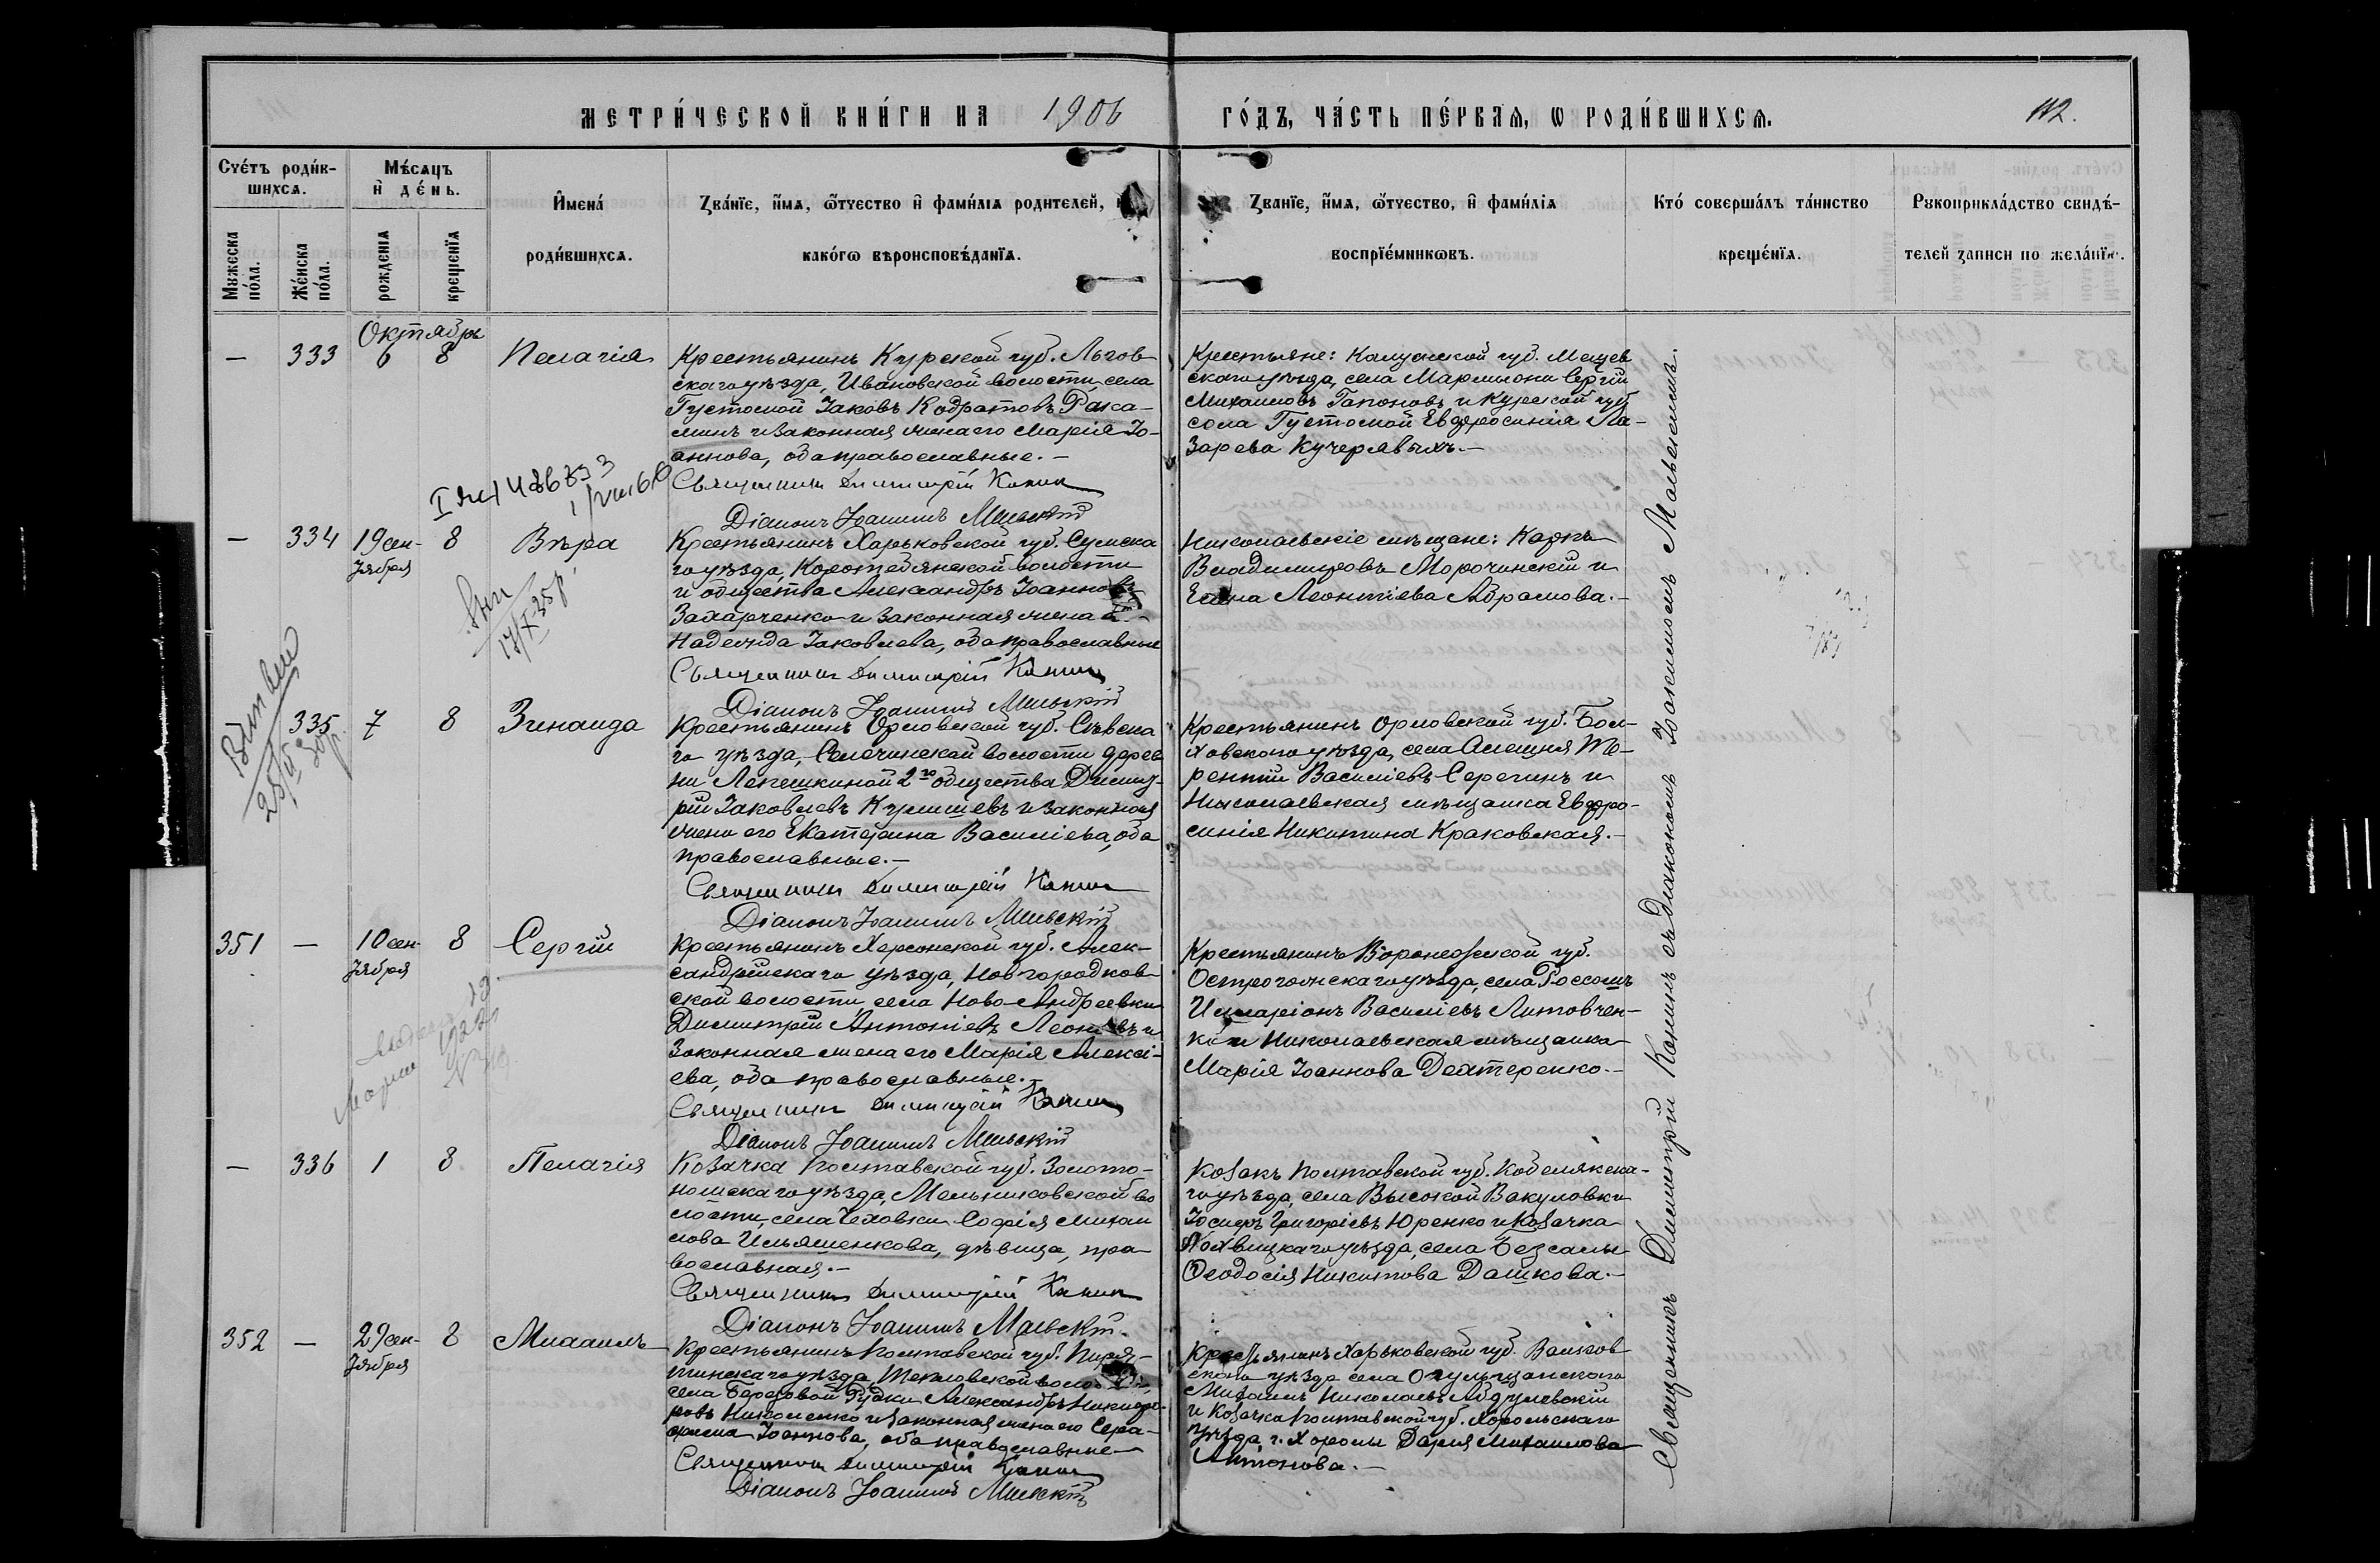 МЕТРИ́ЧЕСКОЙ КНИ́ГИ НА 1906 ГО́ДЪ, ЧА́СТЬ ПЕ́РВАѦ, Ѡ РОДИ́ВШИХСѦ.
112.
Сче́тъ роди́в-
шихсѧ.
Мꙋжеска
по́ла.
Же́нска
по́ла.
Мѣ́сѧцъ
и҆ де́нь.
рожденїѧ
крещенїѧ
И҆мена́
роди́вшихсѧ.
Зва́нїе, и҆́мѧ, ѻ҆́тчество и҆ фами́лїѧ родителей, и
како́гѡ вѣроисповѣ́данїѧ.
Зва́нїе, и҆́мѧ, ѻ҆́тчество, и҆ фами́лїѧ
воспрїе́мниковъ.
Кто́ соверша́лъ та́инство
креще́нїѧ.
Рꙋкоприкла́дство свидѣ́-
телей записи по жела́нїю.
Октябрь
— 333 6 8 Пелагія
Крестьянинъ Курской губ. Льгов-
скаго уѣзда, Ивановской волости, села
Густомой Іаковъ Кодратовъ Раса-
минъ и законная жена его Марія Іо-
аннова, оба православные.—
Священникъ Димитрій Конин
Діаконъ Іоаннъ
Крестьяне: Калужской губ. Мещев
скаго уѣзда, села Мармыжи Сергій
Михаиловъ Гапоновъ и Курской губ.
села Густомой Евфросинія Ла-
зарева Кучерявыхъ.—
— 334 19 сен-
тября 8 Вѣра
Крестьянинъ Харьковской губ. Сумска
го уѣзда, волости
и общества Александръ Іоанновъ
Захарченко и законная жена его
Надежда Іаковлева, оба православные
Священникъ Димитрій Конин
Діаконъ Іоаннъ
Николаевскіе мѣщане: Карпъ
Владимировъ Морочинскій и
Елена Леонтіева Абрамова.—
17/X 35 р.
335 7 8 Зинаида
Крестьянинъ Орловской губ. Сѣвска
го уѣзда, волости дерев
ни Лепешкиной 2го общества Димит-
рій Іаковлевъ Кулишевъ и законная
жена его Екатерина Василіева, оба
православные.—
Священникъ Димитрій Конин
Діаконъ Іоаннъ
Крестьянинъ Орловской губ. Бол-
ховскаго уѣзда, села Алешня Те-
рентій Василіевъ Серегинъ и
Николаевская мѣщанка Евфро-
синія Никитина Краковская.—
351 — 10 сен-
тября 8 Сергій
Крестьянинъ Херсонской губ. Алек-
сандрійскаго уѣзда, Новгородков-
ской волости, села Ново-Андреевки
Димитрій Антоніевъ и
законная жена его Марія Алексі-
ева, оба православные.—
Священникъ Димитрій Конин
Діаконъ Іоаннъ
Крестьянинъ Воронежской губ.
Острогожскаго уѣзда, села Россошъ
Иларіонъ Василіевъ Литовчен-
ко и Николаевская мѣщанка
Марія Іоаннова Дехтеренко.—
— 336 1 8 Пелагія
Козачка Полтавской губ. Золото-
ношскаго уѣзда, Мельниковской во
лости, села Чеховки Софія Михаи
лова Ильяшенкова, дѣвица, пра-
вославная.—
Священникъ Димитрій Конин
Діаконъ Іоаннъ
Козакъ Полтавской губ. Кобелякска-
го уѣзда, села Высокой Вакуловки
Іосифъ Григоріевъ Юренко и козачка
Лохвицкаго уѣзда, села Безсалы
Ѳеодосія Никитова Дашкова.—
352 — 29 сен-
тября 8 Михаилъ
Крестьянинъ Полтавской губ. Пиря-
тинскаго уѣзда,
села Березовой Рудки Александръ Никифо-
ровъ Николенко и законная жена его Сера-
фима Іоаннова, оба православные—
Священникъ Димитрій Конин
Діаконъ Іоаннъ
Крестьянинъ Харьковской губ. Валков
скаго уѣзда села Огульцанскаго
Михаилъ Николаевъ
и козачка Полтавской губ. Хорольскаго
уѣзда, г. Хорола Дарія Михаилова
Антонова.—
Священникъ Димитрій Конинъ съ діакономъ Іоакимомъ